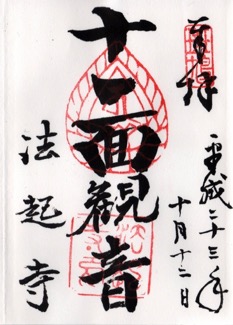 奉拝
平成二十三年
十月十二日
十一面観音
法起寺